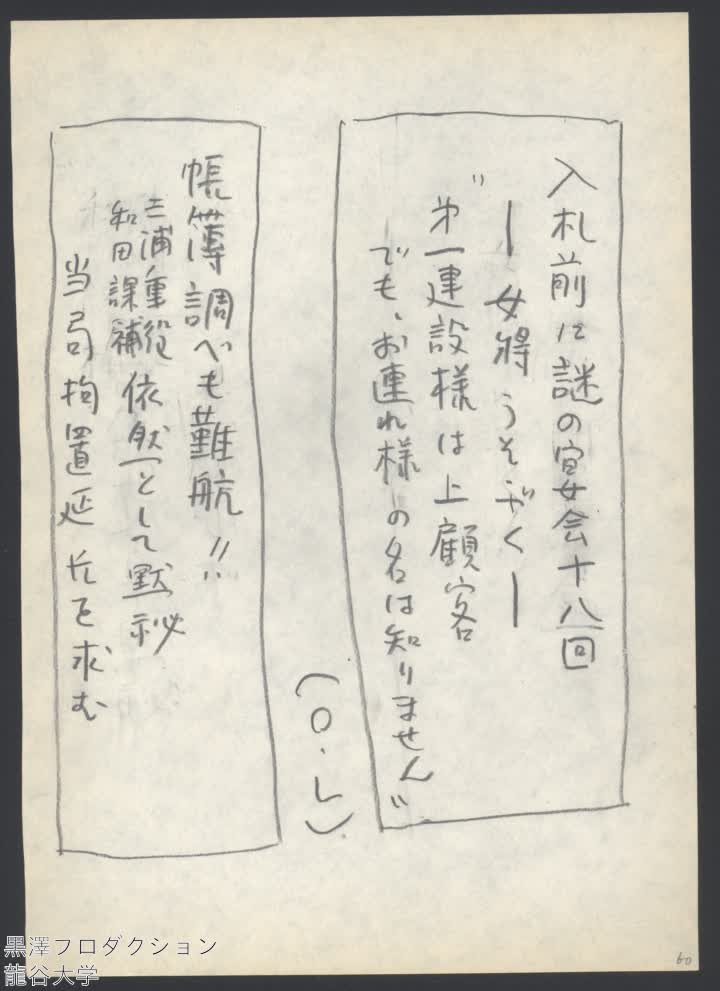 入札前に謎の宴会十八回
ー女将うそぶくー
"第一建設様は上顧客
でも、お連れ様の名は知りません"
(O.L)
帳簿調べも難航!!
三浦重役
和田課補
依然として黙秘
当局拘置延長を求む
60
黒澤プロダクション
龍谷大学